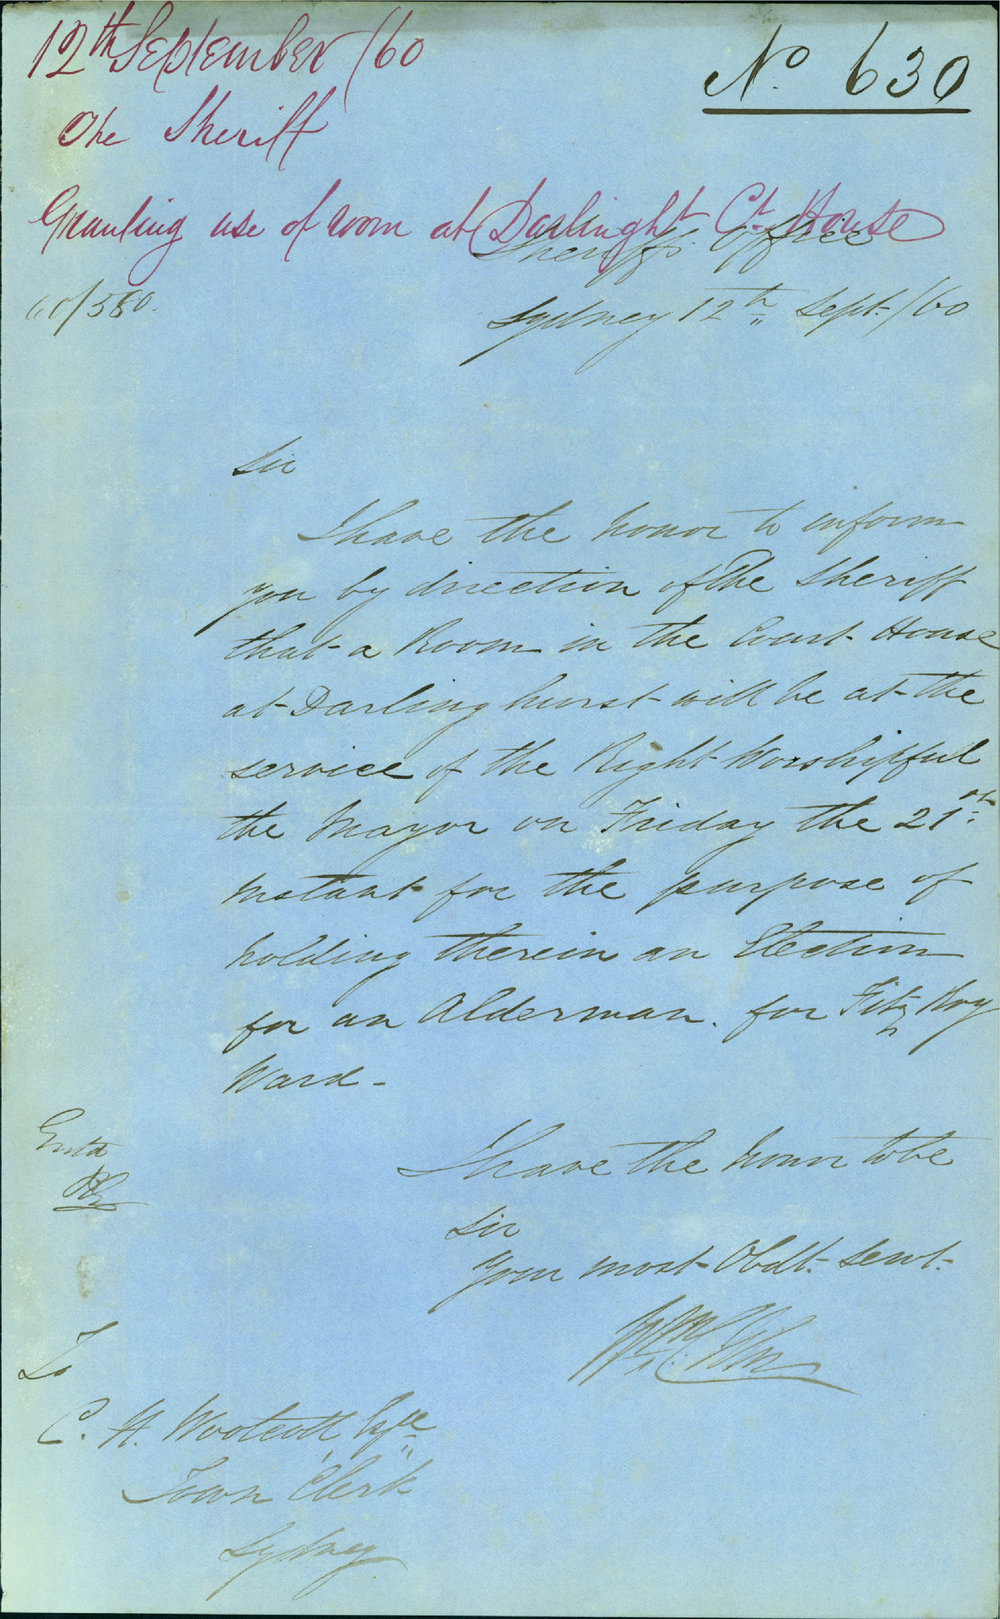 12th September /60
No. 630
The Sheriff
Granting use of room at Darlinght Ct. House
Sheriff's Office
60/580.
Sydney 12th Sept. /60
Sir
I have the honor to inform
you by direction of The Sheriff
that a Room in the Court House
at Darlinghurst will be at the
service of the Right Worshipful
the Mayor on Friday the 21st
Instant for the purpose of
holding therein an Election
for an Alderman. for Fitz Roy
Ward -
I have the honor to be
Sir
Your most Obdt. Servt.
Entd
To
C. H. Woolcott Esqre
Town Clerk
Sydney